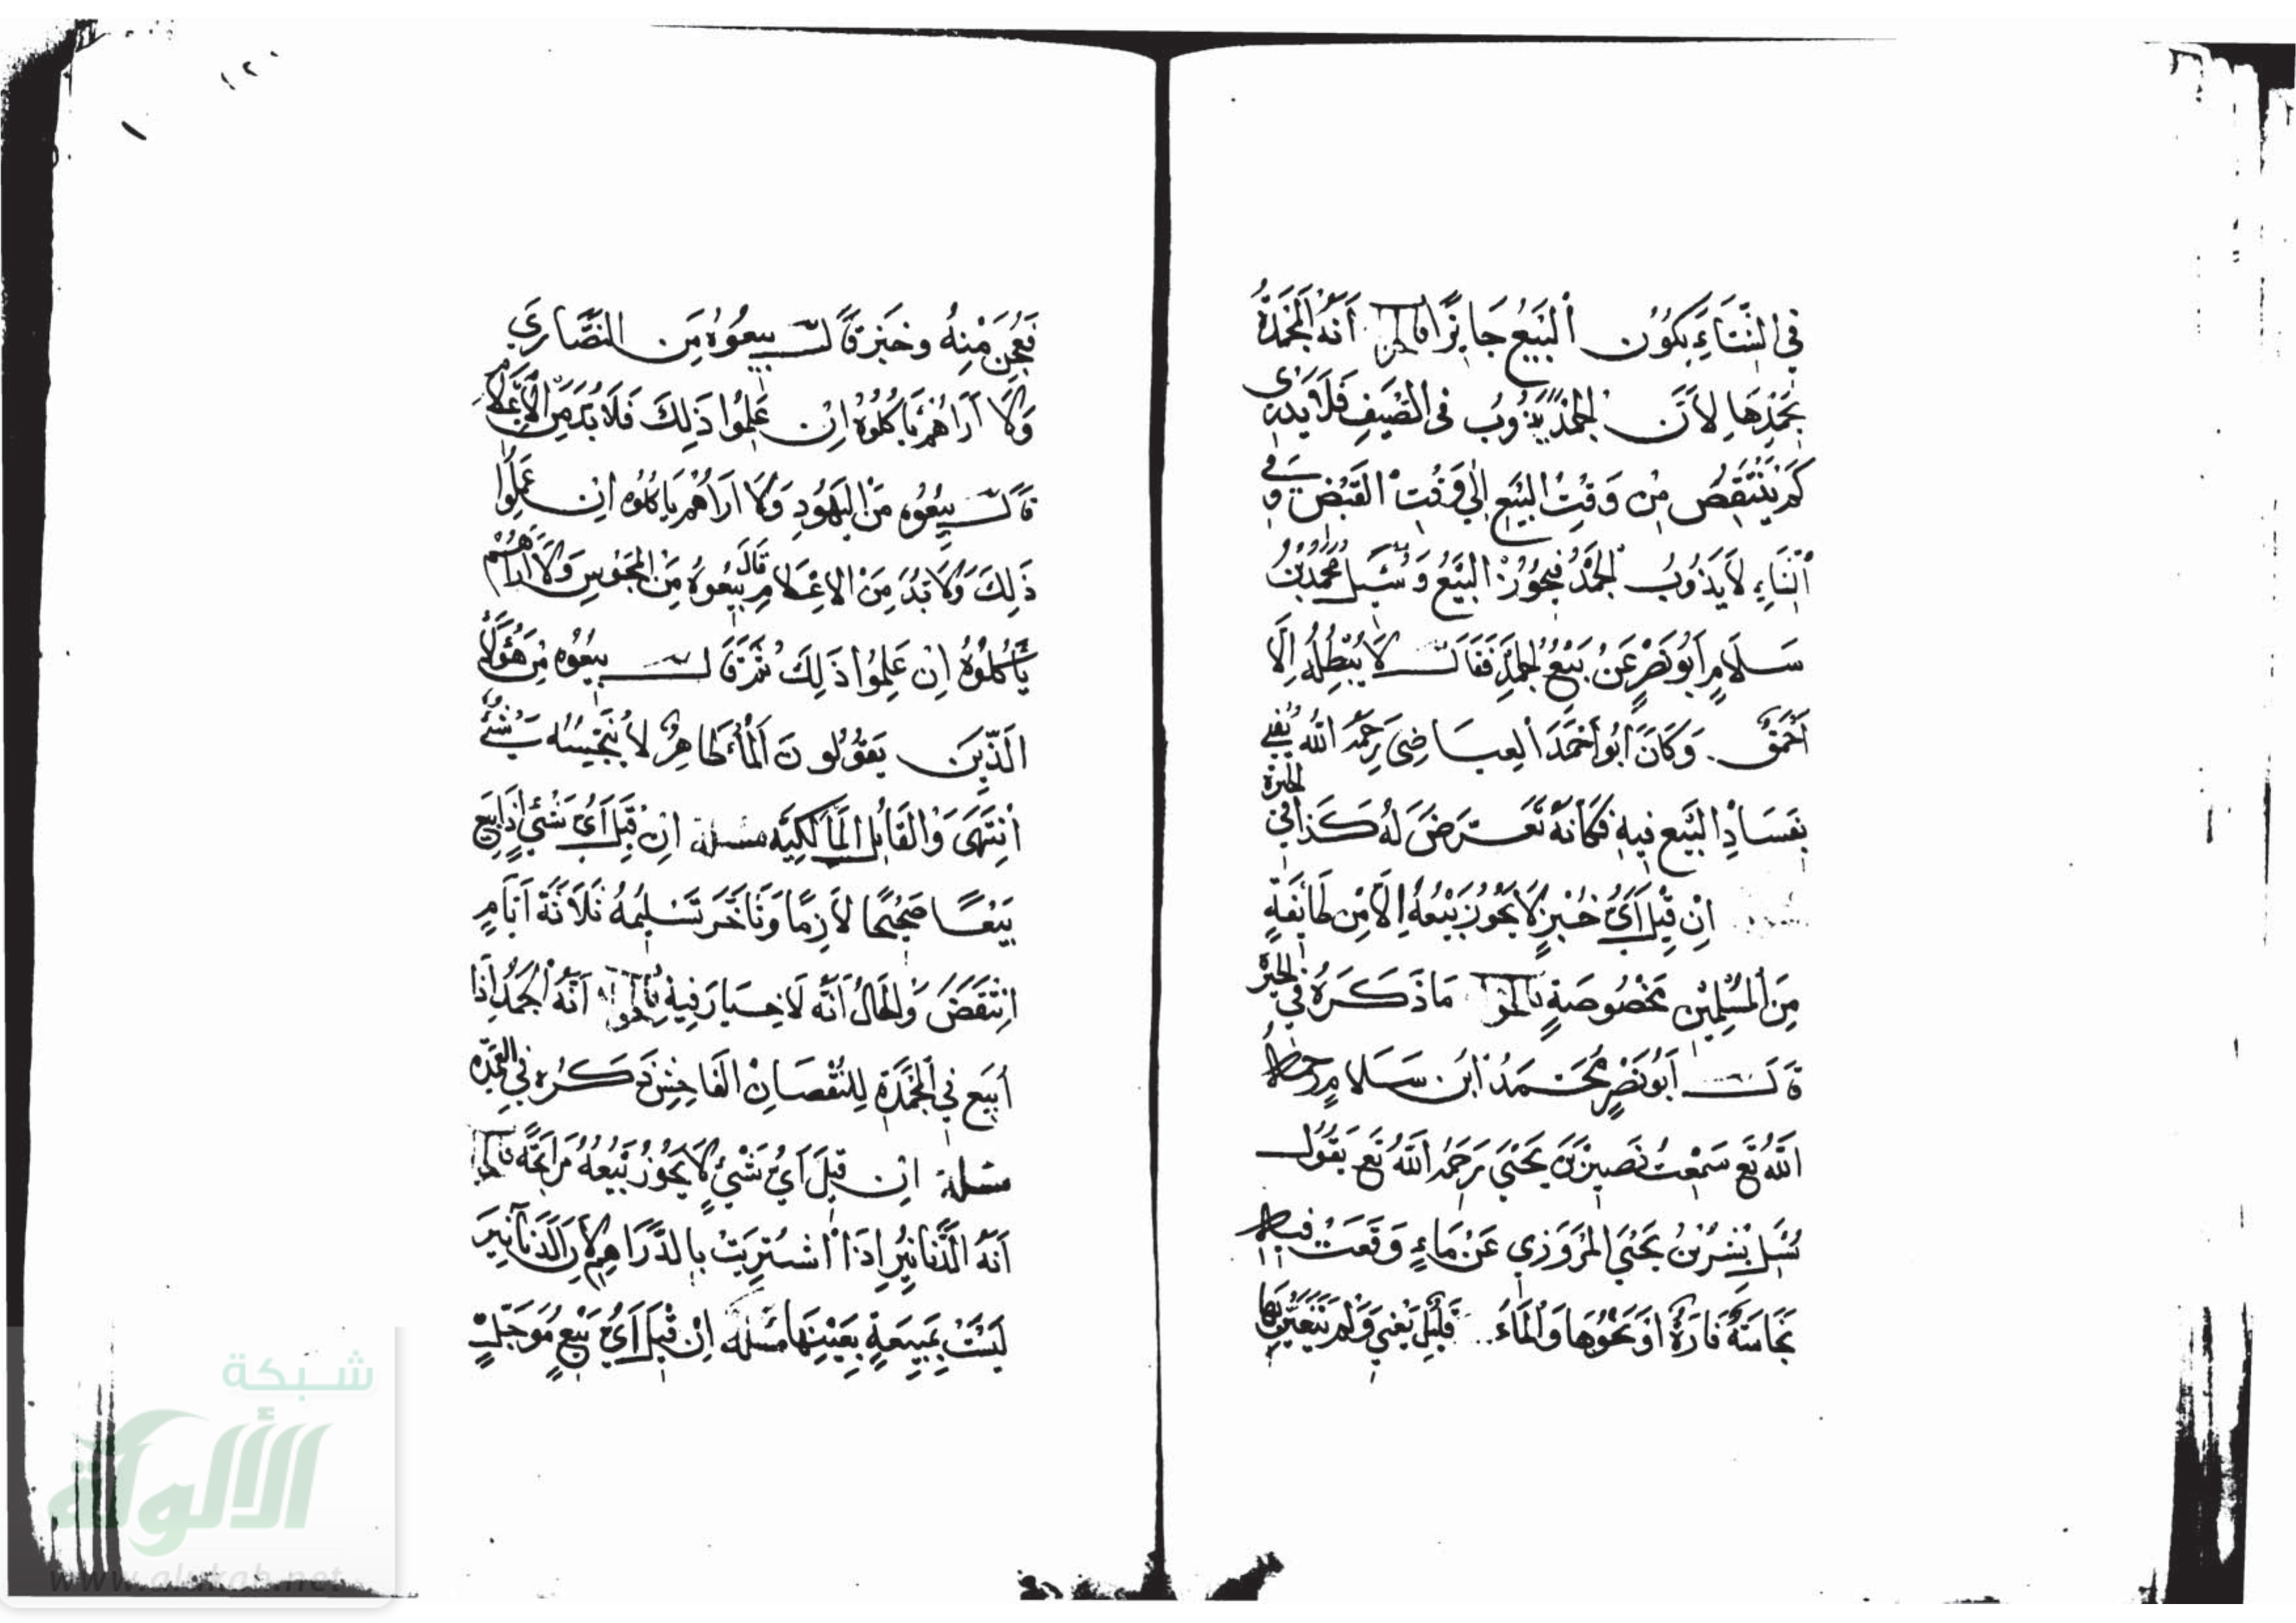 ١٢٠
في الشتاء يكون البيع جايزا فالجواب أنه المجمدة
بجمدها لأن الجمد يذوب في الصيف فلا يدرى
كم ينتقص من وقت البيع إلى وقت القبض وفي
الشتاء لا يذوب الجمد فيجوز البيع وسئل محمد بن
سلام أبو نصر عن بيع الجمد فقال لا يبطله إلا
أحمق وكان أبو أحمد العياضي رحمه الله يفتي
بفساد البيع فيه فكأنه تعرض له كذا في الحيرة
إن قيل أي خبز لا يجوز بيعه إلا من طائفة
من المسلمين مخصوصة فالجواب ما ذكره في الحيرة
قال أبو نصر محمد ابن سلام رحمه
الله تع سمعت نصير بن يحيى رحمه الله تع يقول
سئل بشر بن يحيى المروزي عن ماء وقعت فيه
نجاسة فارة أو نحوها والماء قليل يعني ولم يتغير بها
فعجن منه وخبز قال بيعوه من النصارى
ولا أراهم يأكلوه إن علموا ذلك فلا بد من الإعلام
قال بيعوه من اليهود ولا أراهم يأكلوه إن علموا
ذلك ولا بد من الإعلام قال بيعوه من المجوس ولا أراهم
يأكلوه إن علموا ذلك ثم قال بيعوه من هؤلاء
الذين يقولون الماء طاهر لا ينجسه شئ
انتهى والقائل المالكية مسئلة إن قيل أي شئ إذا بيع
بيعا صحيحا لازما وتأخر تسليمه ثلاثة أيام
انتقض والحال أنه لا خيار فيه فالجواب أنه الجمد إذا
أبيع في المجمدة للنقصان الفاحش ذكره في العمدة
مسئلة إن قيل أي شئ لا يجوز بيعه مرابحة فالجواب
أنه الدنانير إذا اشتريت بالدراهم لأن الدنانير
ليست بمبيعة بعينها مسئلة إن قيل أي بيع مؤجل
شبكة
الألوكة
www.alukah.net